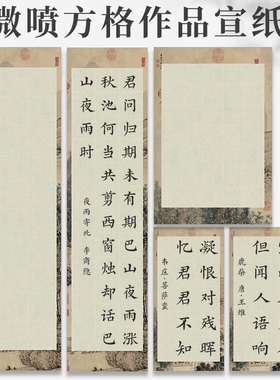 微喷方格作品宣纸
君问归期未有期巴山夜雨涨
秋池何当共剪西窗烛却话巴
山夜雨时
夜雨寄北 李商隐
凝恨对残晖
忆君君不知
韦庄·菩萨蛮
但闻人语响
鹿柴 唐·王维